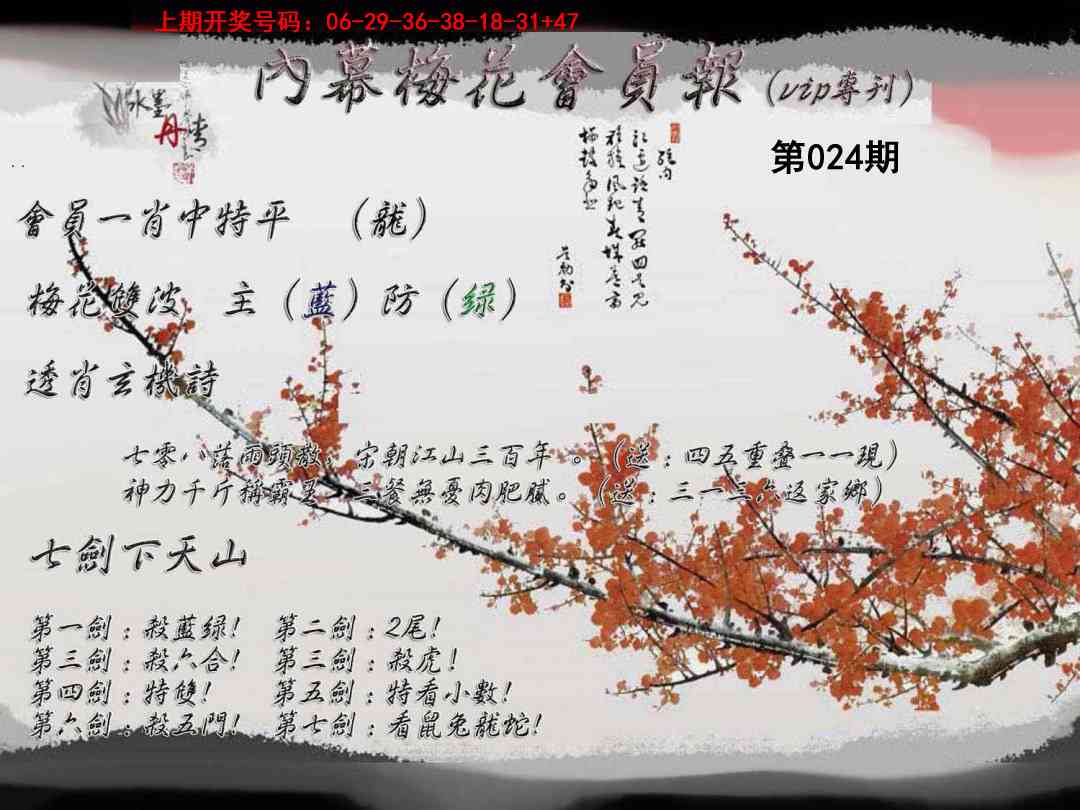 上期开奖号码：06-29-36-38-18-31+47
內幕梅花會員報（vip專刊）
水墨
丹青
第024期
會員一肖中特平 （龍）
梅花雙波 主（藍）防（绿）
透肖玄機詩
七零八落兩頭散，宋朝江山三百年。（送：四五重叠一一現）
神力千斤稱霸王，三餐無憂肉肥膩。（送：三一三六返家鄉）
七劍下天山
第一劍：殺藍绿！ 第二劍：2尾！
第三劍：殺六合！ 第三劍：殺虎！
第四劍：特雙！ 第五劍：特看小數！
第六劍：殺五門！ 第七劍：看鼠兔龍蛇！